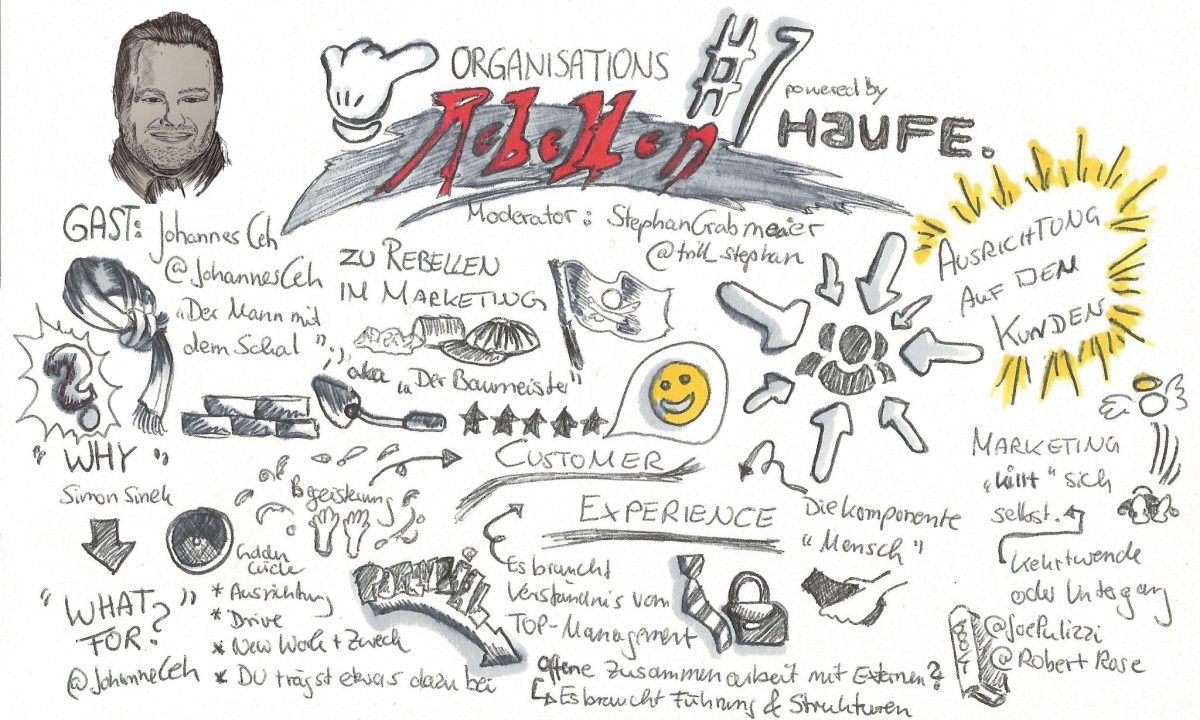 ORGANISATIONS
Rebellen
#1
powered by
HAUFE.
GAST: Johannes Ceh
@JohannesCeh
"Der Mann mit
dem Schal"
Moderator: Stephan Grabmeier
@trill_stephan
ZU REBELLEN
IM MARKETING
aka "Der Baumeister"
AUSRICHTUNG
AUF DEN
KUNDEN
?
"WHY"
Simon Sinek
Begeisterung
CUSTOMER
EXPERIENCE
Die Komponente
"Mensch"
MARKETING
"killt" sich
selbst.
Kehrtwende
oder Untergang
BOOT
@JoePulizzi
@Robert Rose
Golden
Circle
"WHAT
FOR?"
@JohanneCeh
* Ausrichtung
* Drive
* New Work + Zweck
* DU trägst etwas dazu bei
Es braucht
Verständnis vom
TOP-Management
Offene Zusammenarbeit mit Externen?
Es braucht Führung & Strukturen